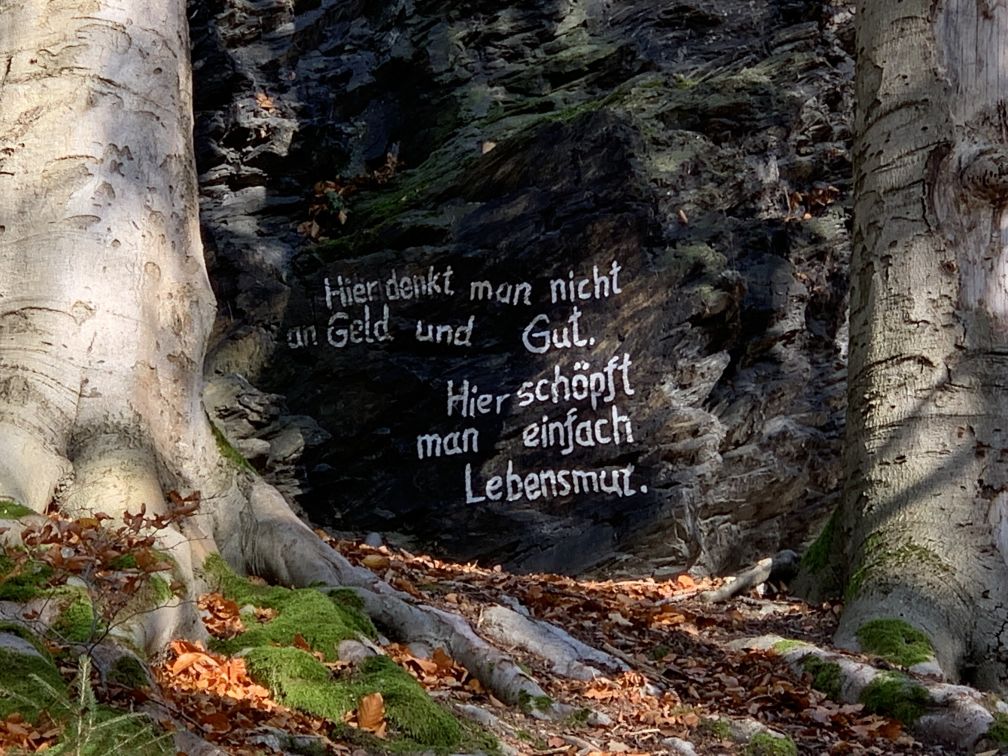 Hier denkt man nicht
an Geld und Gut.
Hier schöpft
man einfach
Lebensmut.